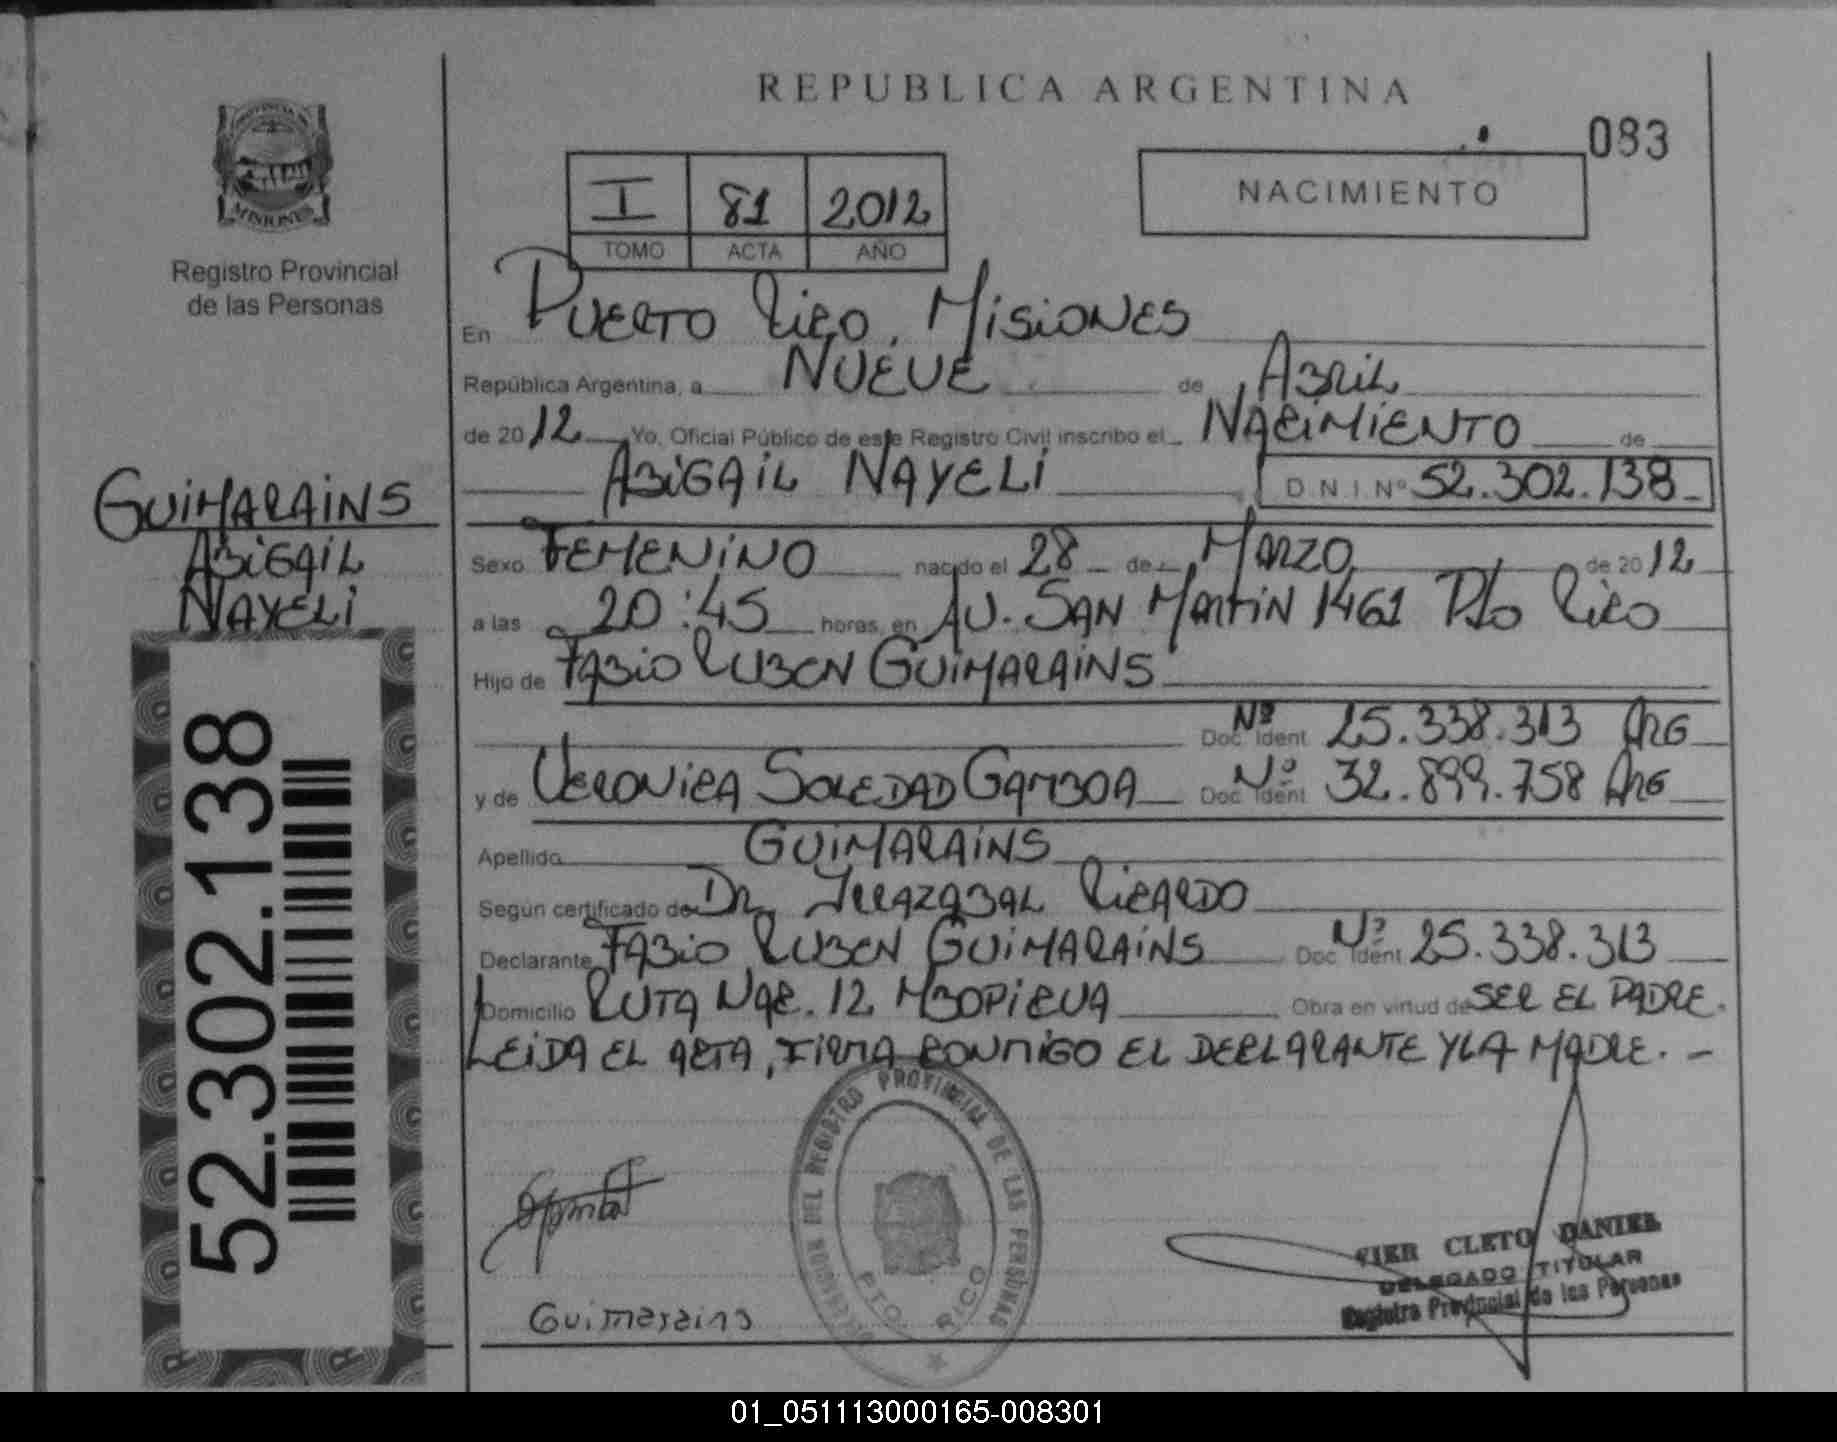 REPUBLICA ARGENTINA
083
PROVINCIA DE
MISIONES
Registro Provincial
de las Personas
I 81 2012
TOMO ACTA AÑO
NACIMIENTO
En PUERTO RICO, MISIONES
República Argentina, a NUEVE de ABRIL
de 2012 Yo, Oficial Público de este Registro Civil inscribo el NACIMIENTO de
ABIGAIL NAYELI D.N.I. Nº 52.302.138
GUIMARAINS
ABIGAIL
NAYELI
Sexo FEMENINO nacido el 28 de MARZO de 2012
a las 20:45 horas, en AV. SAN MARTIN 1461 Pto RICO
Hijo de FABIO RUBEN GUIMARAINS
Doc. Ident Nº 25.338.313 ARG
y de VERONICA SOLEDAD GAMBOA Doc. Ident Nº 32.899.758 ARG
Apellido GUIMARAINS
Según certificado de DR. IRRAZABAL RICARDO
Declarante FABIO RUBEN GUIMARAINS Doc. Ident Nº 25.338.313
Domicilio RUTA NAC. 12 MBOPICUA Obra en virtud de SER EL PADRE.
LEIDA EL ACTA, FIRMA CONMIGO EL DECLARANTE Y LA MADRE. -
52.302.138
DEL REGISTRO PROVINCIAL DE LAS PERSONAS
PTO. RICO
Guimarains
CLETO DANIEL
DELEGADO TITULAR
Registro Provincial de las Personas
01_051113000165-008301